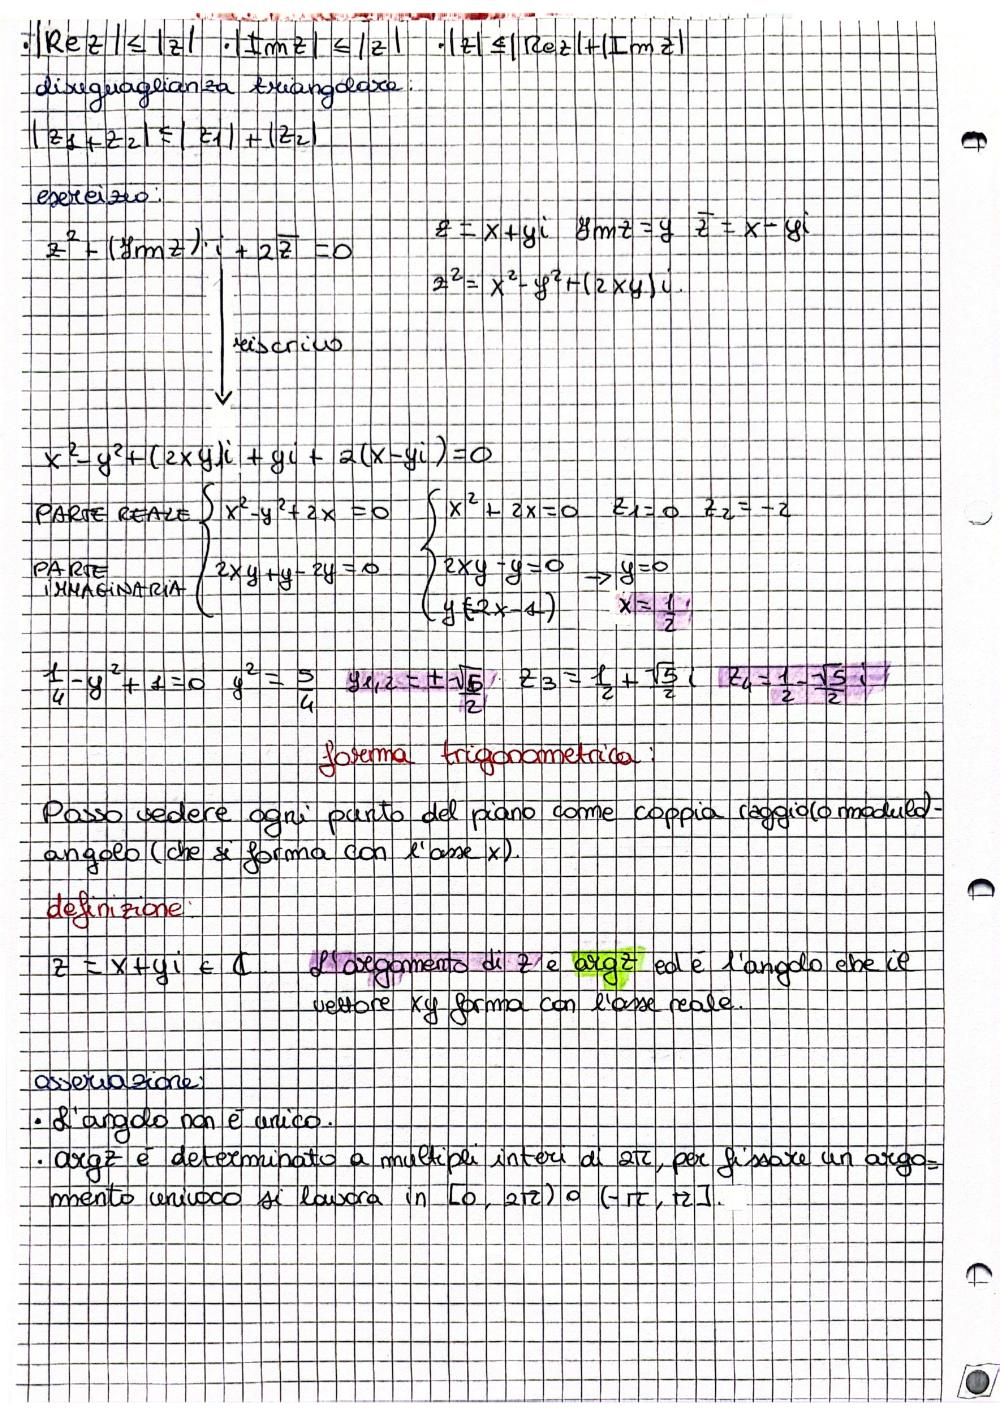 ·|Re z| ≤ |z| ·|Im z| ≤ |z| ·|z| ≤ |Re z|+|Im z|
diseguaglianza triangolare:
|z1+z2| ≤ |z1|+|z2|
esercizio:
z²+(Im z)·i+2z̅=0
z=x+yi Im z=y z̅=x-yi
z²=x²-y²+(2xy)i.
riscrivo
x²-y²+(2xy)i+yi+2(x-yi)=0
PARTE REALE { x²-y²+2x=0 { x²+2x=0 z1=0 z2=-2
PARTE IMMAGINARIA 2xy+y-2y=0 2xy-y=0 → y=0
y(2x-1) x=1/2
1/4-y²+1=0 y²=5/4 y1,2=±√5/2 z3=1/2+√5/2 i z4=1/2-√5/2 i
forma trigonometrica:
Posso vedere ogni punto del piano come coppia raggio(o modulo)-
angolo (che si forma con l'asse x).
definizione:
z=x+yi ∈ ℂ L'argomento di z è arg z ed è l'angolo che il
vettore xy forma con l'asse reale.
osservazione:
· L'angolo non è unico.
· arg z è determinato a multipli interi di 2π, per fissare un argo=
mento univoco si lavora in [0, 2π) o (-π, π].